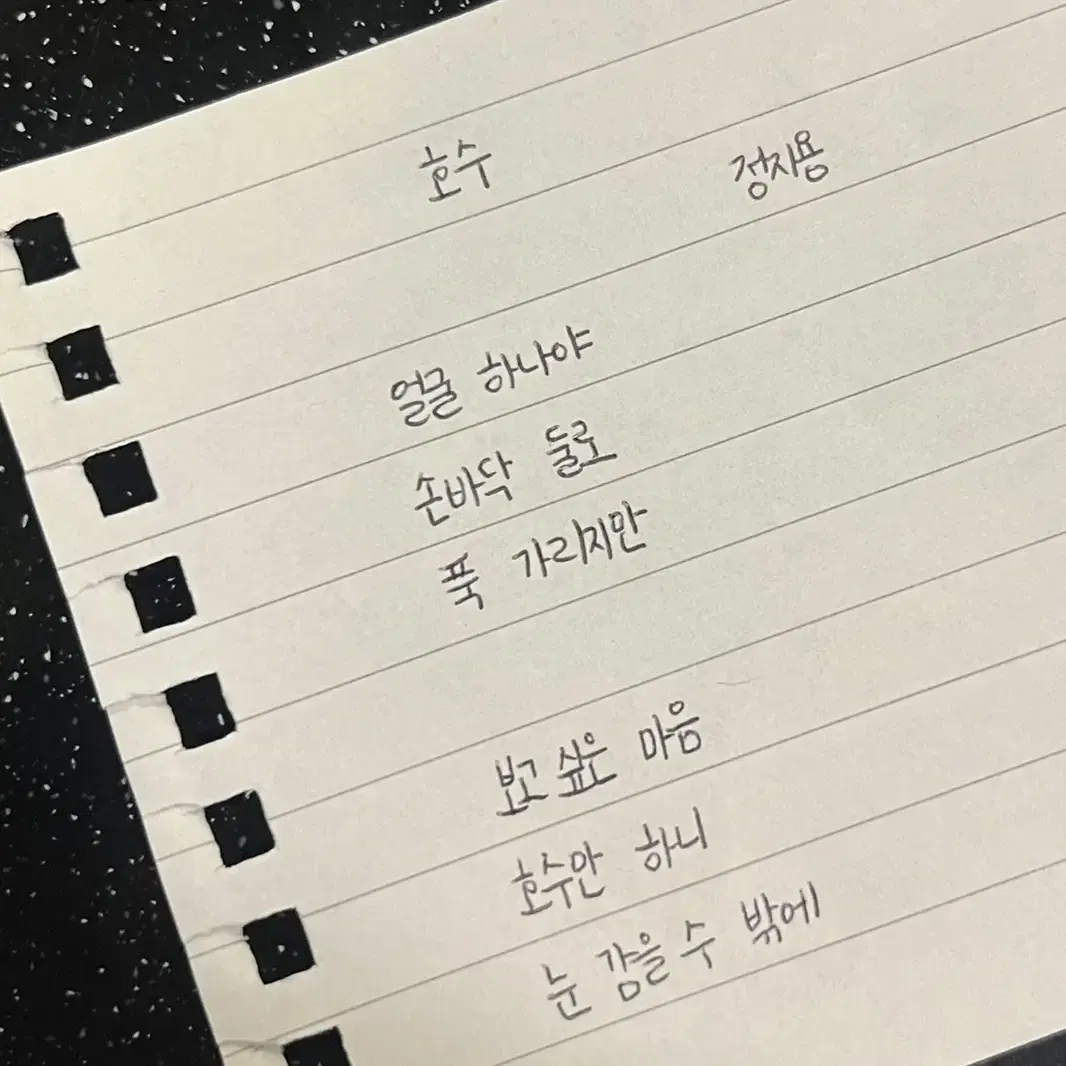 호수 정지용
얼굴 하나야
손바닥 둘로
푹 가리지만
보고 싶은 마음
호수만 하니
눈 감을 수 밖에